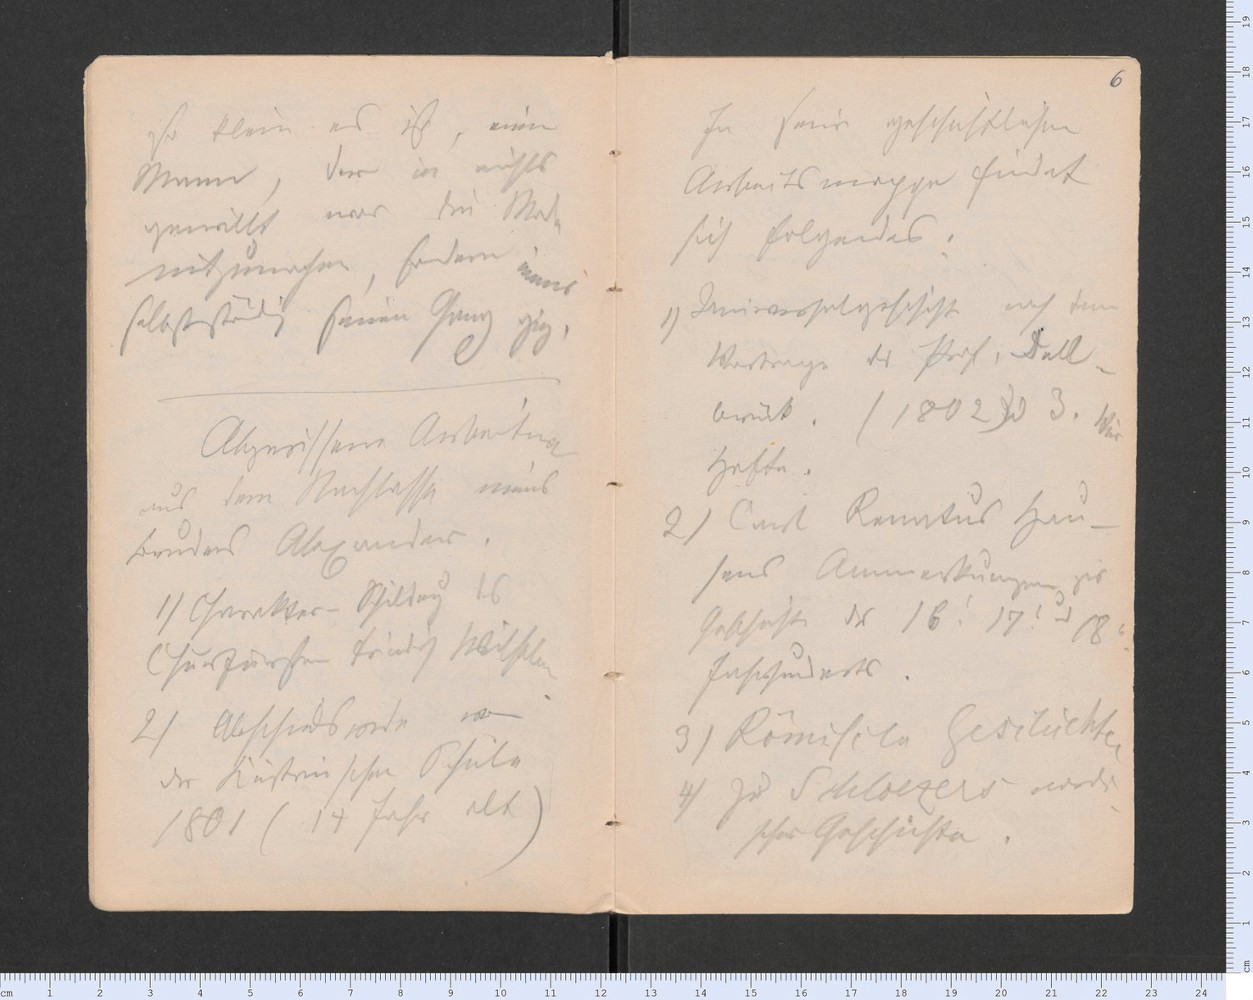 so klein es ist, einen
Mann, der in nichts
gewillt war die Mode
mitzumachen, sondern immer
selbstständig seinen Gang ging.
Abgerissene Arbeiten
aus dem Nachlasse meines
Bruders Alexander.
1) Charakter-Schildrg des
Churfürsten Friedrich Wilhelm
2) Abschiedsworte von
der Küstrinschen Schule
1801 (14 Jahr alt)
6
In seiner geschichtlichen
Arbeitsmappe findet
sich folgendes:
1) Universalgeschichte nach dem
Vortrage des Prof. Dell-
brück. (1802) 3.
Hefte.
2) Carl Renatus Hau-
sens Anmerkungen zur
Geschichte des 16. 17. und 18.
Jahrhunderts.
3) Römische Geschichte,
4) Zu Schloezers nordi-
scher Geschichte.